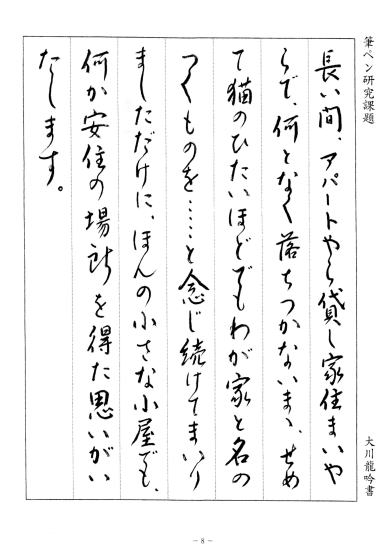 筆ペン研究課題
長い間、アパートやら貸し家住まいや
らで、何となく落ちつかないまゝ、せめ
て猫のひたいほどでもわが家と名の
つくものを……と念じ続けてまいり
ましただけに、ほんの小さな小屋でも、
何か安住の場所を得た思いがい
たします。
大川龍吟書
－8－